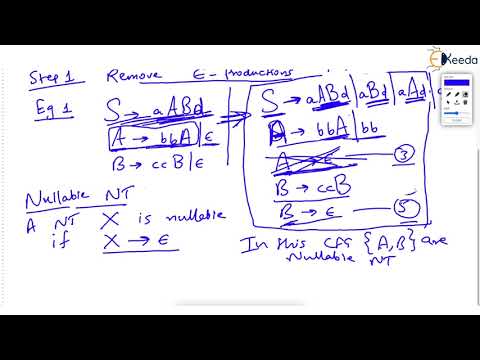 Step 1 Remove ε-Productions
Eg 1
S → aABd
A → bbA | ε
B → ccB | ε
S → aABd | aBd | aAd |
A → bbA | bb
A → ε ③
B → ccB
B → ε ⑤
Nullable NT
A NT X is nullable
if X → ε
In this CFG {A,B} are
Nullable NT
Keeda